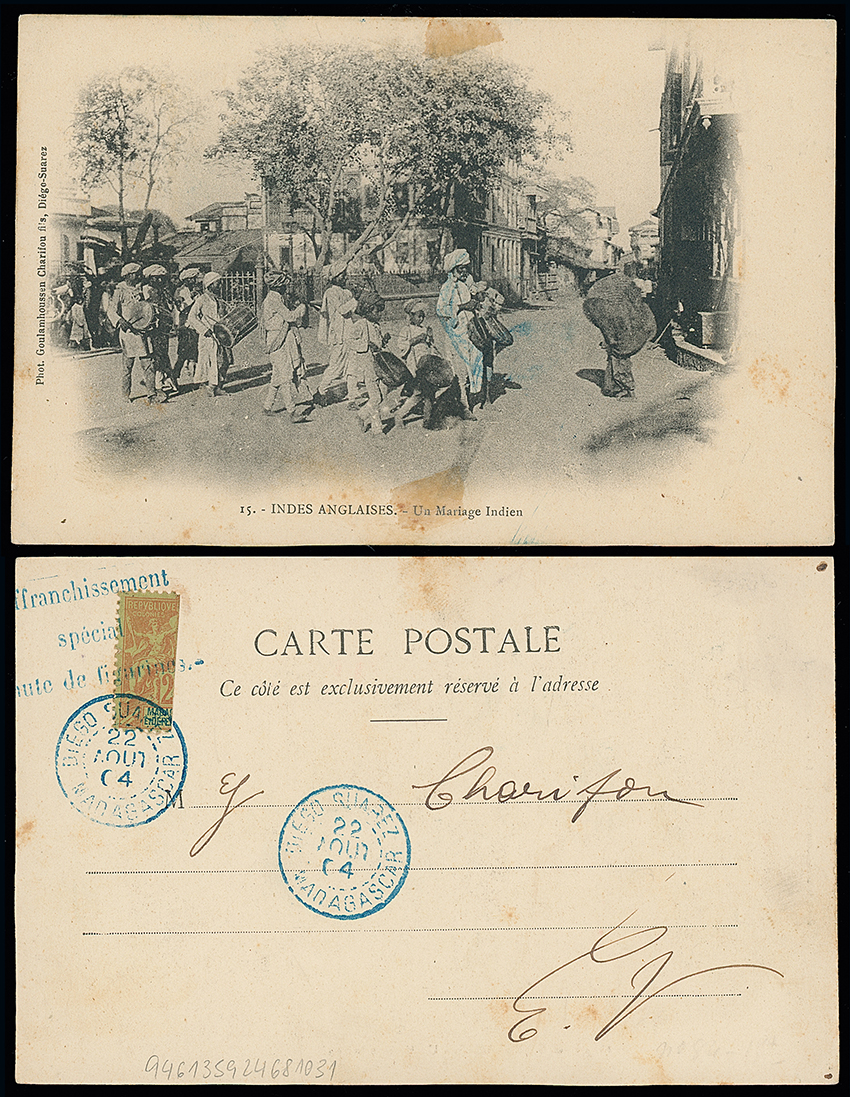 Phot. Goulamhoussen Charifou fils, Diégo-Suarez
15. - INDES ANGLAISES. - Un Mariage Indien
ffranchissement
spécial
aute de figurines.-
REPVBLIQVE
COLONIES
2
MADA
DIEGO SUAREZ
22
AOUT
04
MADAGASCAR
CARTE POSTALE
Ce côté est exclusivement réservé à l'adresse
M Charifou
DIEGO SUAREZ
22
AOUT
04
MADAGASCAR
E. V.
946135924681031